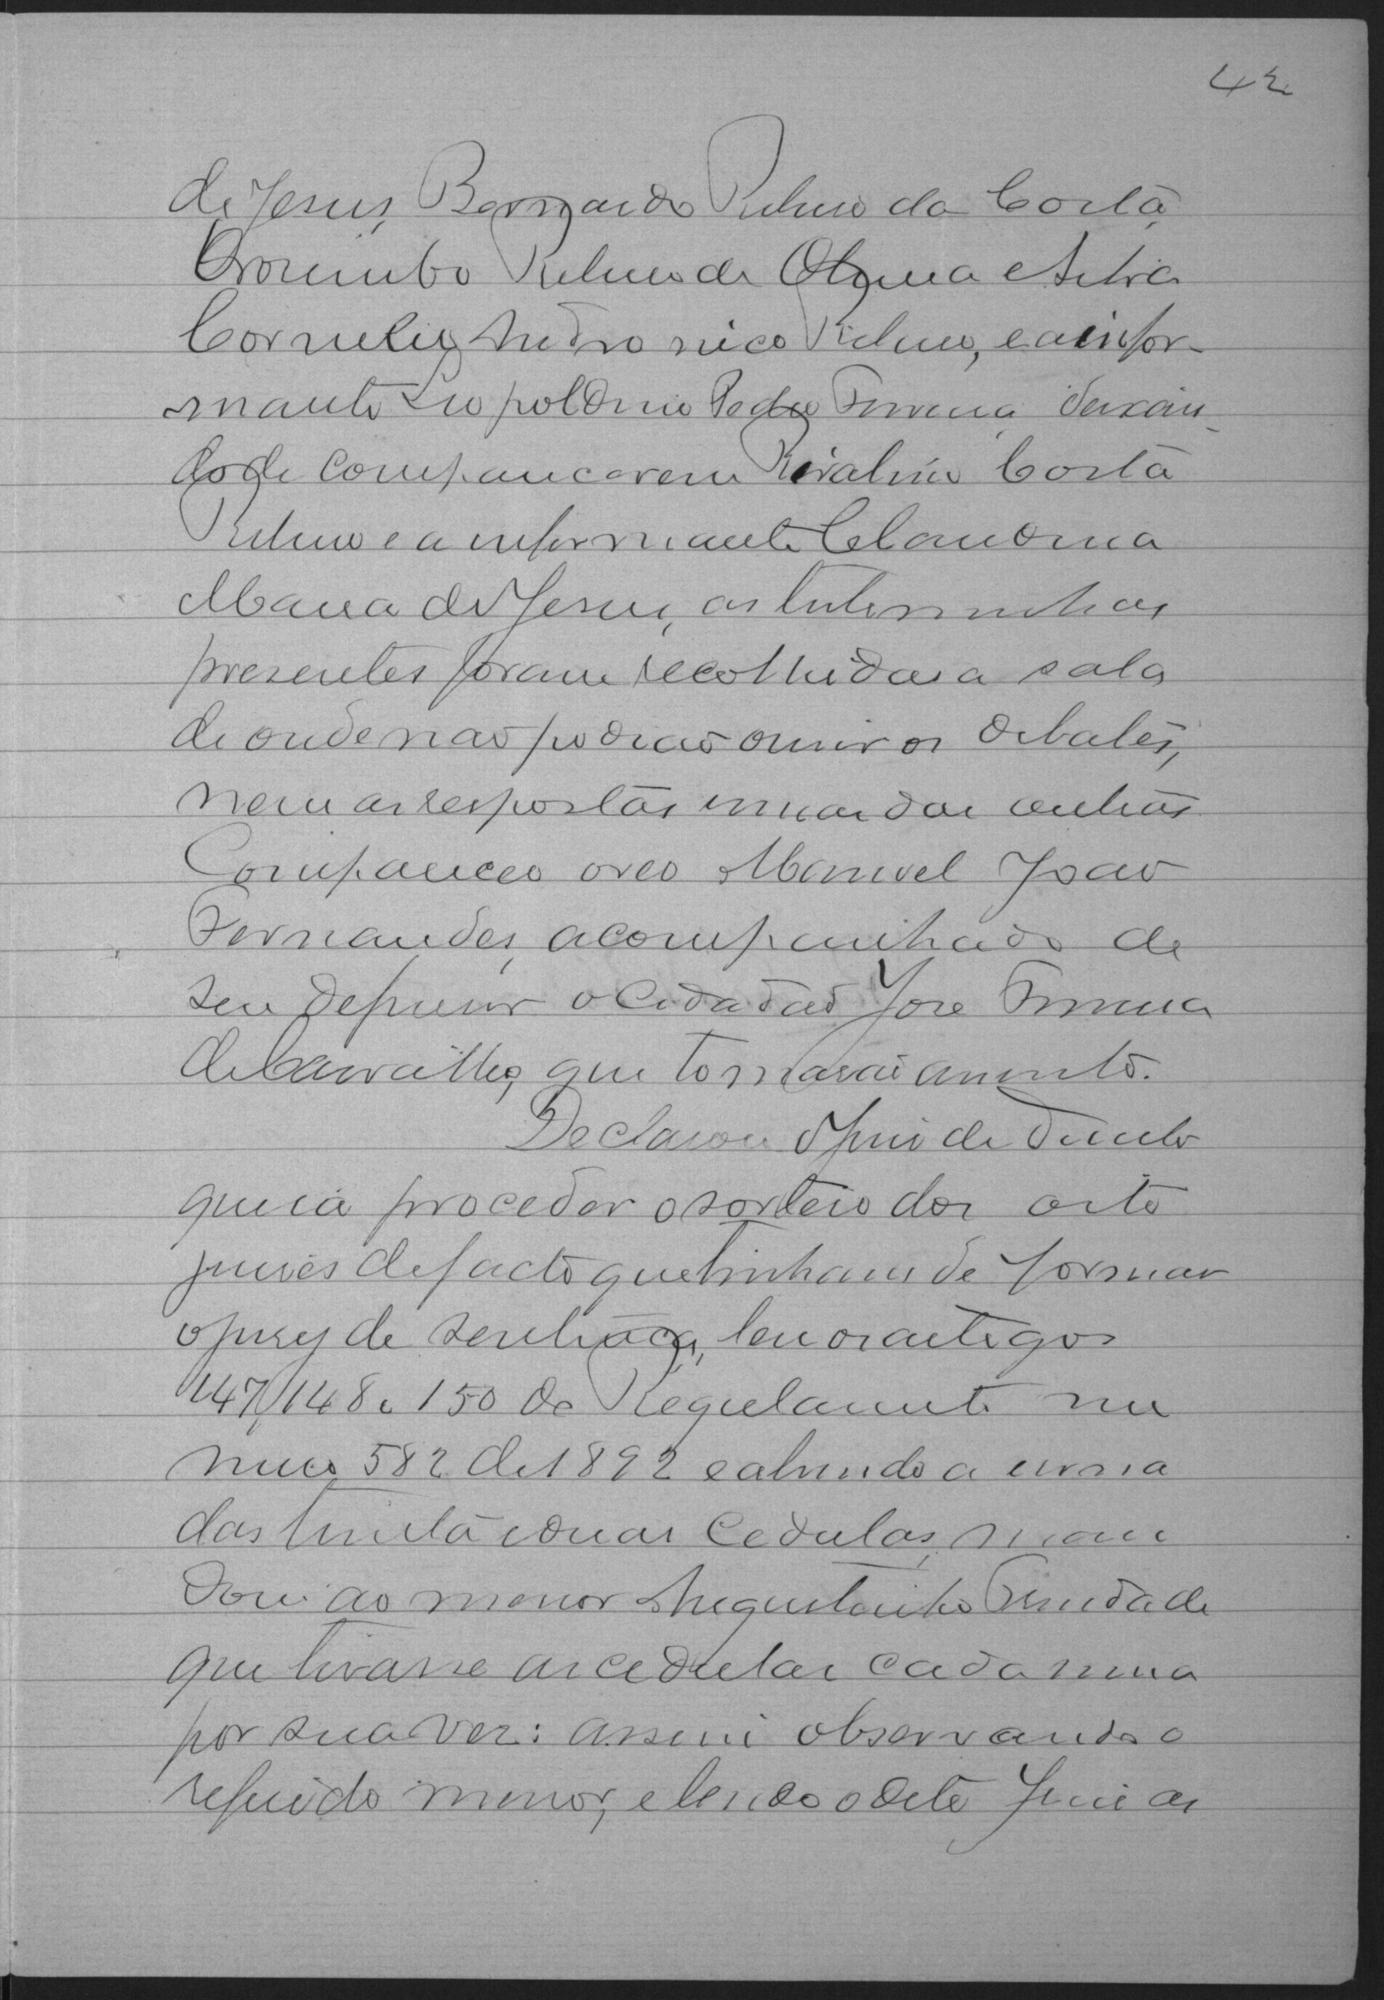 42
de Jesus, Bernardo Ribeiro da Costa,
Orozimbo Ribeiro de Oliveira e Silva
Cornelio Andronico Ribeiro, e a infor-
mante Leopoldina Pedro Ferreira, deixan-
do de comparecerem Rivalino Costa
Ribeiro e a informante Claudina
Maria de Jesus, as testemunhas
presentes foram recolhidas a sala
de onde não podião ouvir os debates,
nem as respostas umas das outras
Compareceo o reo Manoel João
Fernandes, acompanhado de
seu defensor o Cidadão José Ferreira
de Carvalho, que tomarão assento.
Declarou o Juiz de Direito
que ia proceder o sorteio dos oito
juises de facto que tinham de formar
o jury de sentença, leu os artigos
147, 148 e 150 do Regulamento nu
mero 582 de 1892 e abrindo a urna
das trinta e duas cedulas, man
dou ao menor Augustinho Trindade
que tirasse as cedulas cada uma
por sua vez: assim observando o
referido menor, e lendo o dito Juiz as